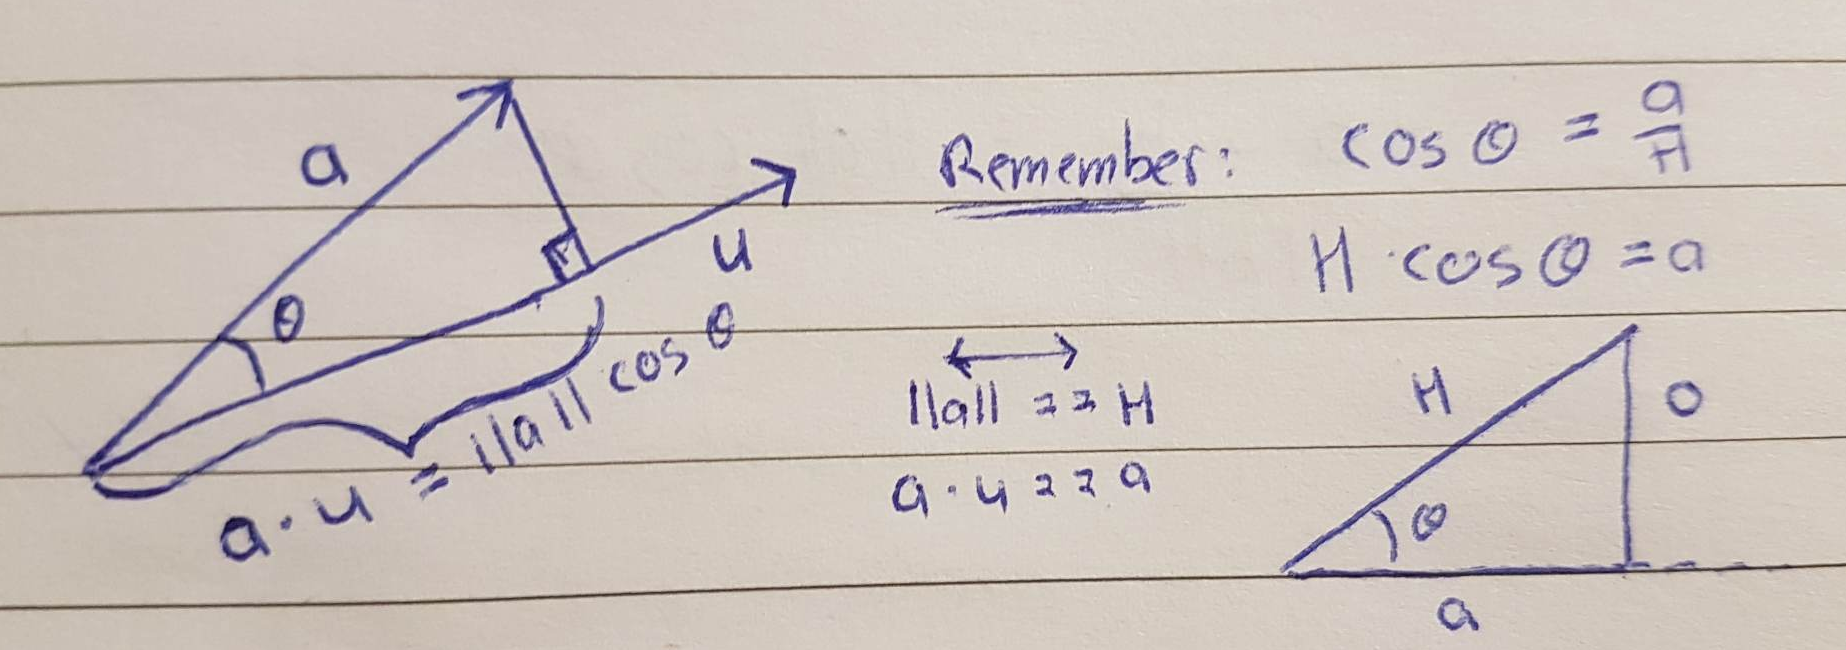 a
θ
u
a·u = ||a|| cos θ
Remember: cos θ = a/H
H·cos θ = a
↔
||a|| == H
a·u == a
H
O
θ
a